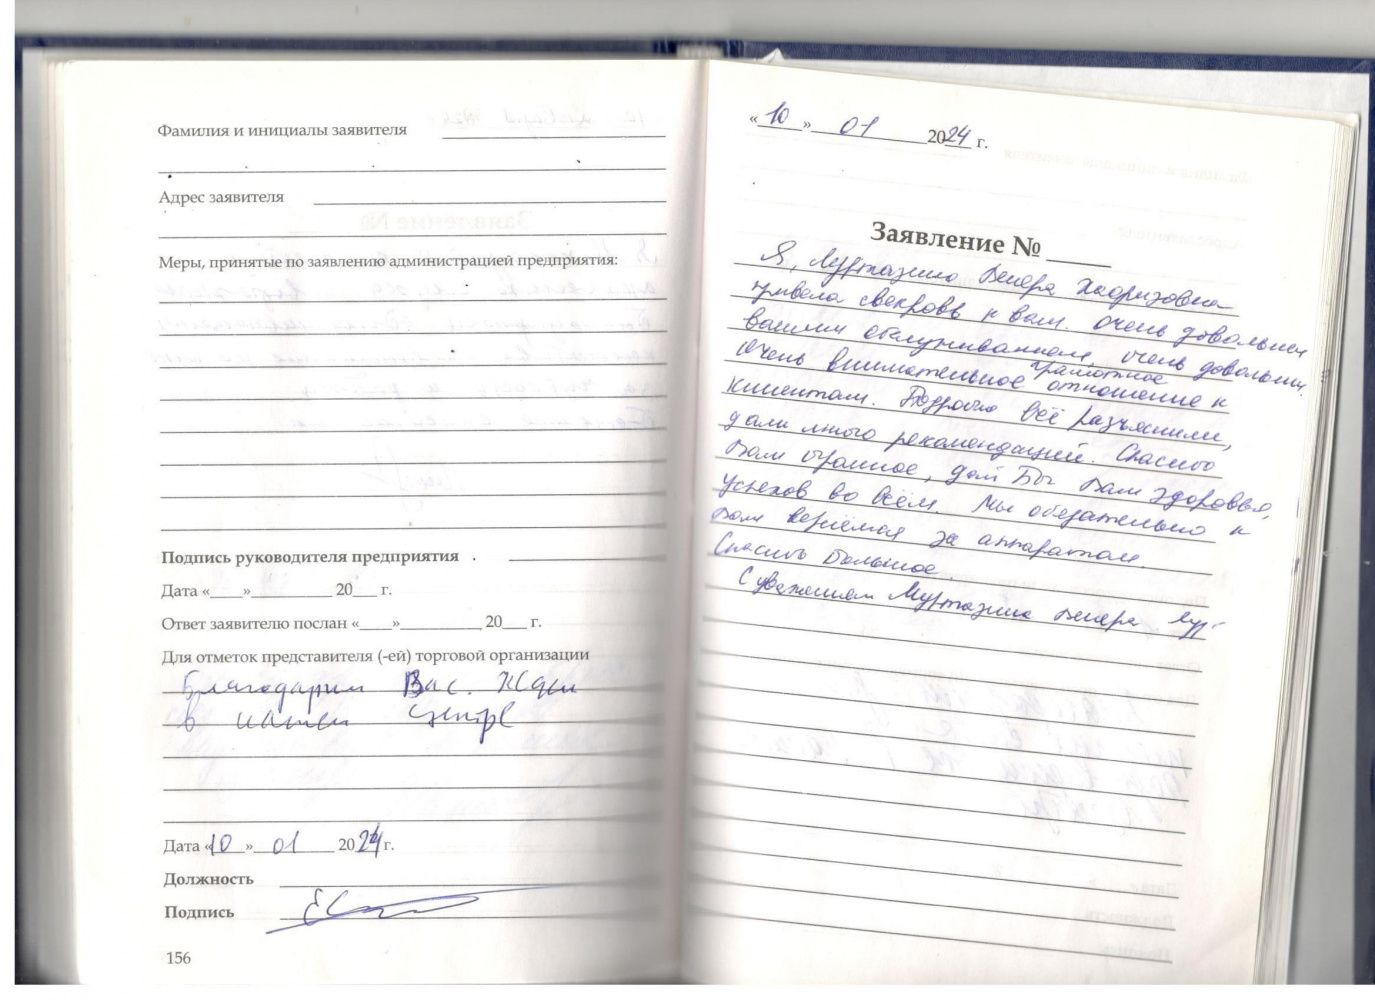 Фамилия и инициалы заявителя
Адрес заявителя
Меры, принятые по заявлению администрацией предприятия:
Подпись руководителя предприятия
Дата «___»_________ 20__ г.
Ответ заявителю послан «___»_________ 20__ г.
Для отметок представителя (-ей) торговой организации
Благодарим Вас. Ждем
в нашем центре
Дата «10» 01 2024 г.
Должность
Подпись
156
«10» 01 2024 г.
Заявление № ____
Я, Муртазина Венера
привела свекровь к вам. Очень довольны
вашим обслуживанием, очень довольны
грамотное
Очень внимательное отношение к
клиентам. Всё разъяснили,
дали много рекомендаций. Спасибо
Вам огромное, дай Бог Вам здоровья,
успехов во всём. Мы обезательно к
Вам вернёмся за аппаратом.
Спасибо Большое.
С уважением Муртазина Венера